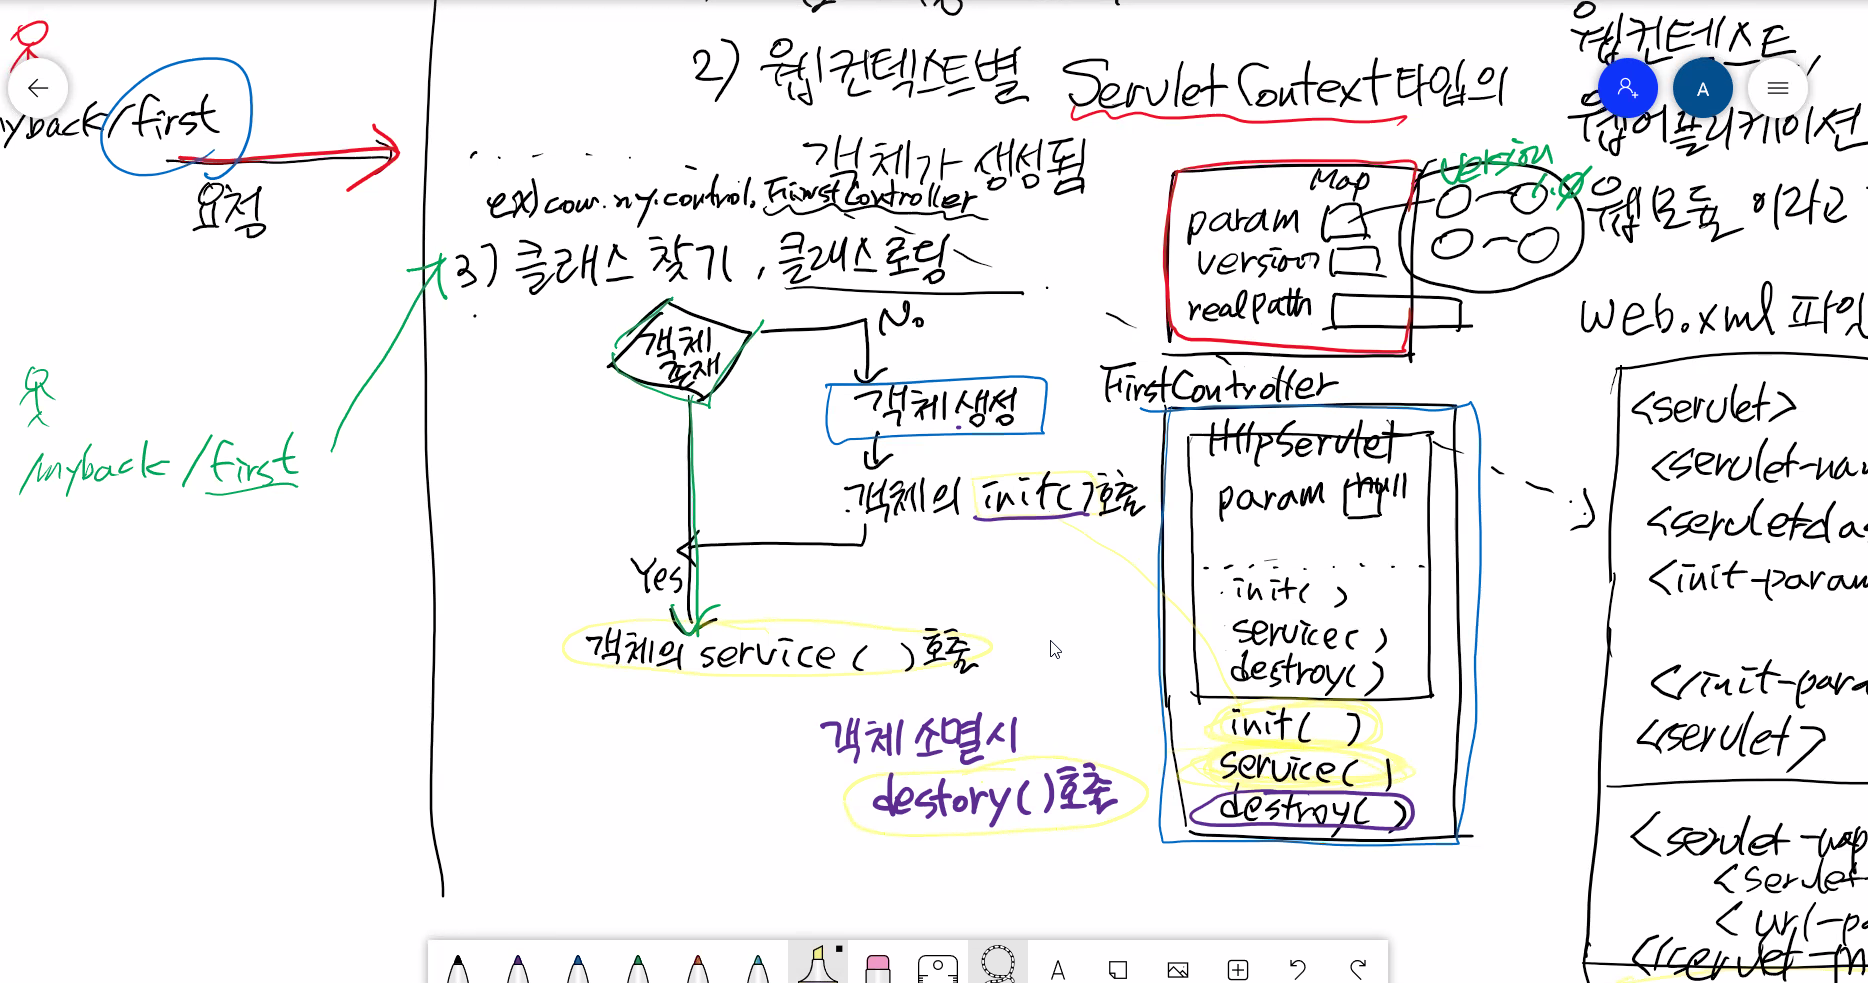 2) 웹컨텍스트별 ServletContext타입의
객체가 생성됨
ex) com.my.control.FirstController
3) 클래스 찾기, 클래스로딩
객체
존재
No
객체생성
객체의 init()호출
Yes
객체의 service ( ) 호출
객체 소멸시
destory()호출
/first
요청
/myback/first
Map
version
1.0
param
version
realpath
FirstController
HttpServlet
param null
init( )
service( )
destroy( )
init( )
service( )
destroy( )
웹컨텍스트
웹어플리케이션
웹모듈 이라고
web.xml 파일
<servlet>
<servlet-nam
<servletclas
<init-param
</init-para
<servlet>
<servlet-map
<servlet
<url-pa
</servlet-m
A
A